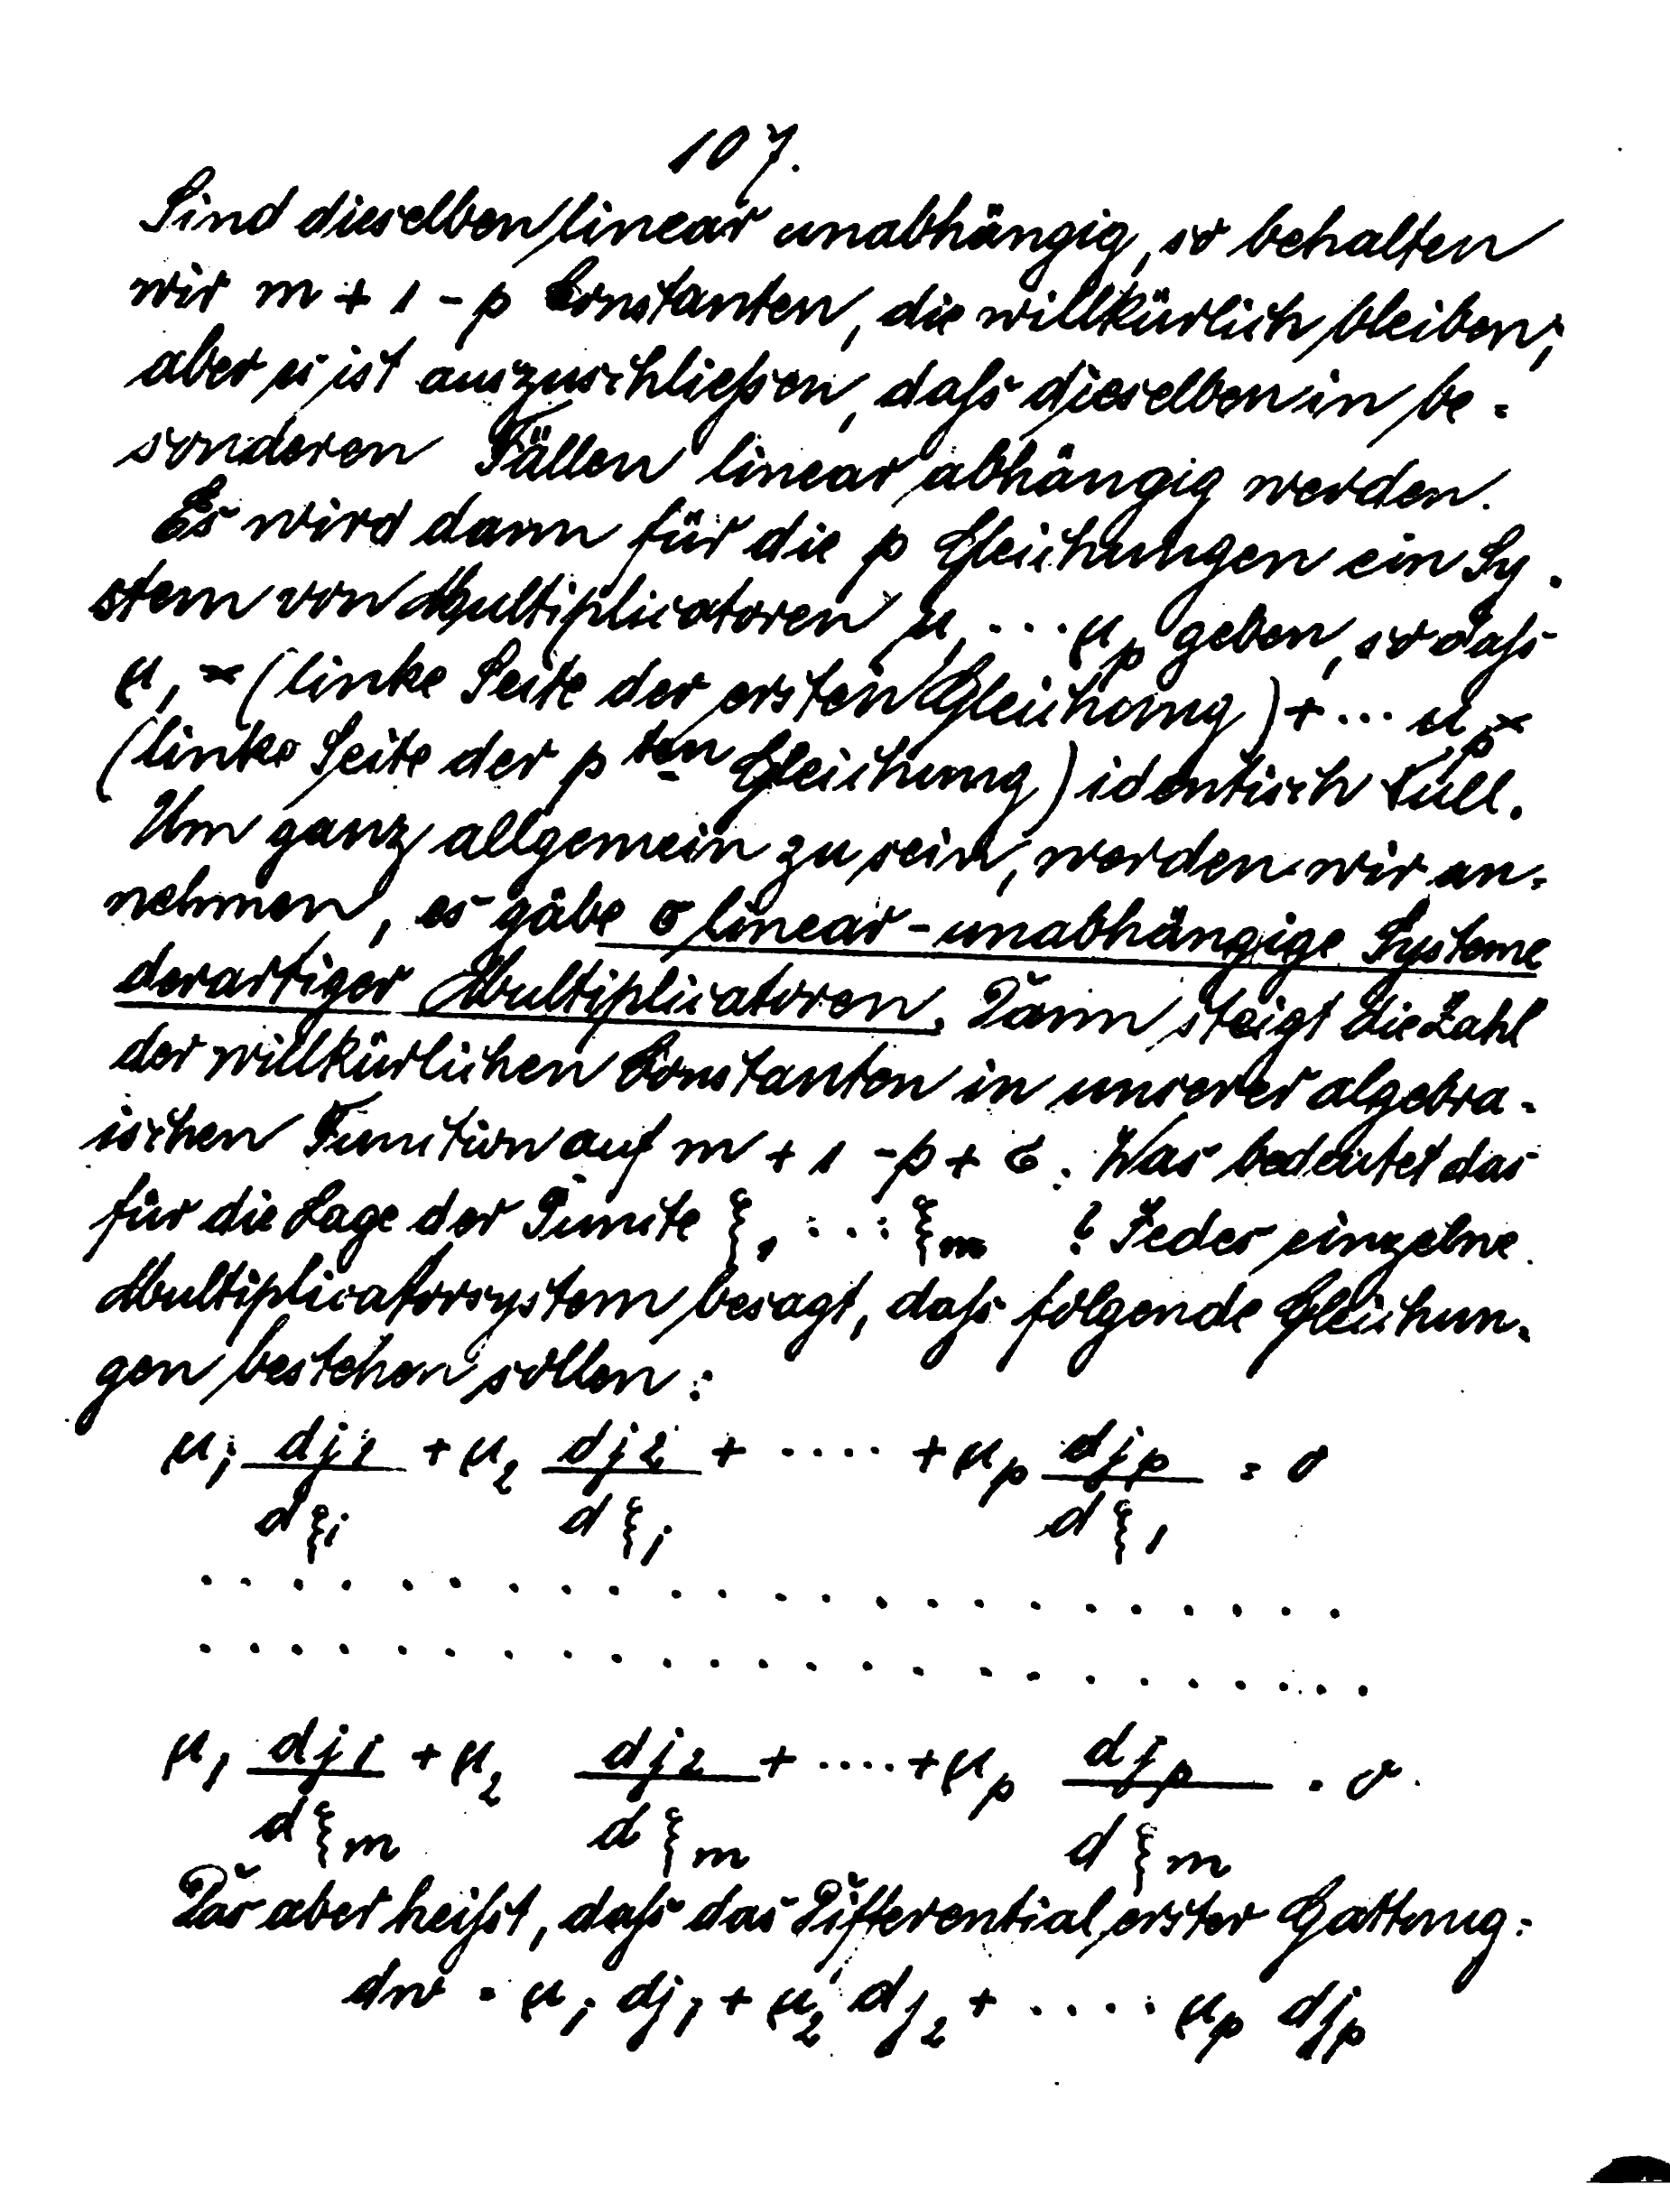 107.
Sind dieselben linear unabhängig, so behalten
wir m + 1 - p Constanten, die willkürlich bleiben;
aber es ist auszuschließen, daß dieselben in be-
sonderen Fällen linear abhängig werden.
Es wird dann für die p Gleichungen ein Sy-
stem von Multiplicatoren μ₁ ... μₚ geben, so daß
μ₁ × (linke Seite der ersten Gleichung) + ... μₚ ×
(linke Seite der pten Gleichung) identisch Null.
Um ganz allgemein zu sein, werden wir an-
nehmen, es gäbe σ linear-unabhängige Systeme
derartiger Multiplicatoren. Dann steigt die Zahl
der willkürlichen Constanten in unserer algebra-
ischen Function auf m + 1 - p + σ. Was bedeutet das
für die Lage der Puncte ξ₁ ... ξₘ ? Jedes einzelne
Multiplicatorsystem besagt, daß folgende Gleichun-
gen bestehen sollen:
μ₁ dj₁/dξ₁ + μ₂ dj₂/dξ₁ + .... + μₚ djₚ/dξ₁ = 0
. . . . . . . . . . . . . . . . . . . . . .
. . . . . . . . . . . . . . . . . . . . . .
μ₁ dj₁/dξₘ + μ₂ dj₂/dξₘ + .... + μₚ djₚ/dξₘ = 0.
Das aber heißt, daß das Differential erster Gattung:
dw = μ₁ dj₁ + μ₂ dj₂ + .... μₚ djₚ